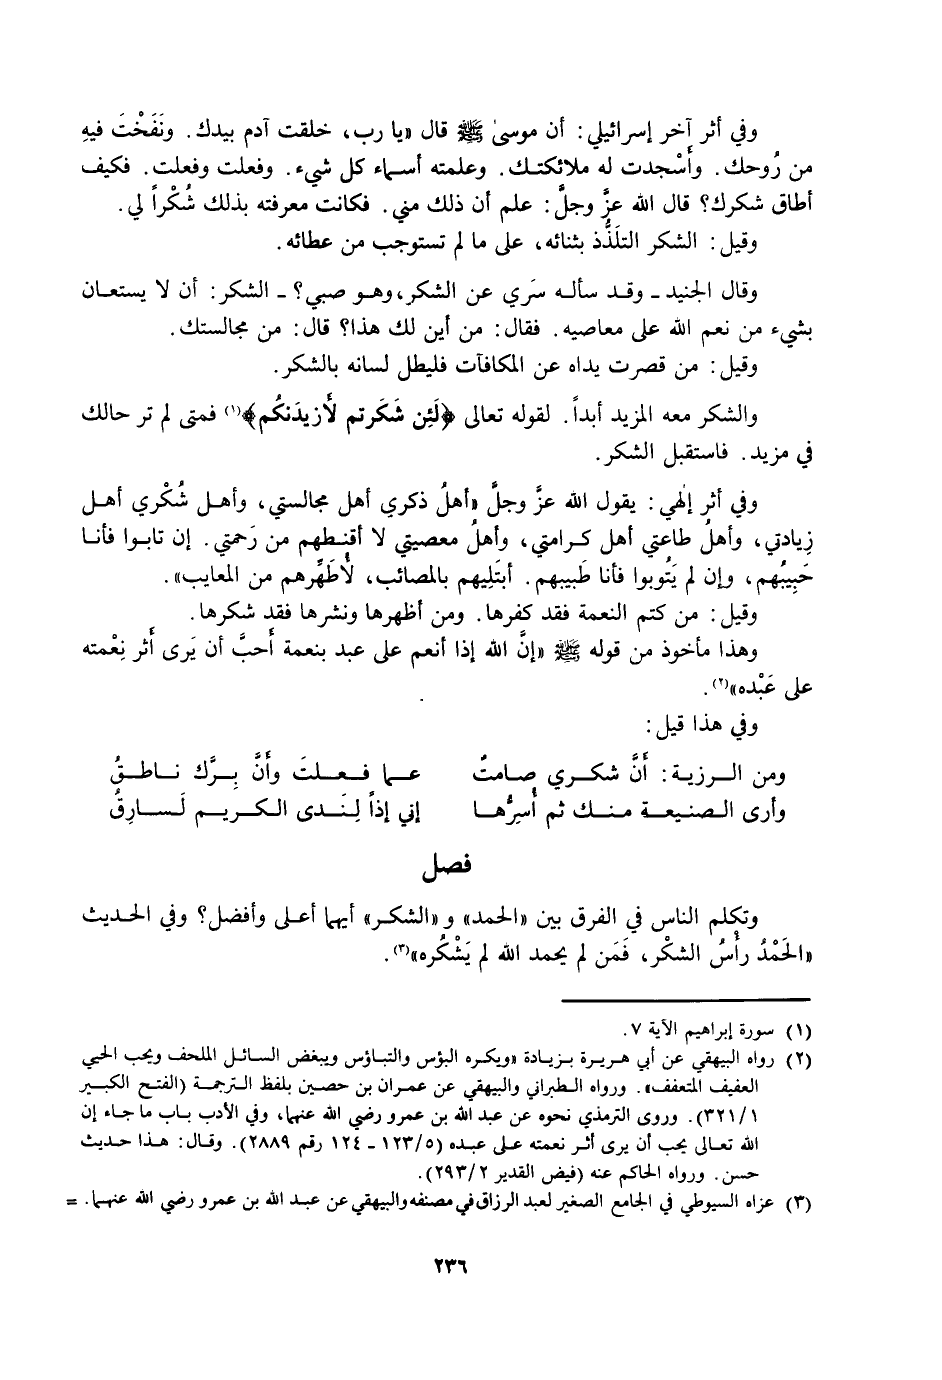 وفي أثر آخر إسرائيلي: أن موسىٰ ﷺ قال «يا رب، خلقت آدم بيدك. ونَفَخْتَ فيهِ
من رُوحك. وأَسْجدت له ملائكتك. وعلمته أسماء كل شيء. وفعلت وفعلت. فكيف
أطاق شكرك؟ قال الله عزَّ وجلَّ: علم أن ذلك مني. فكانت معرفته بذلك شُكْراً لي.
وقيل: الشكر التلَذُّذ بثنائه، على ما لم تستوجب من عطائه.
وقال الجنيد ـ وقد سأله سَري عن الشكر، وهو صبي؟ ـ الشكر: أن لا يستعان
بشيء من نعم الله على معاصيه. فقال: من أين لك هذا؟ قال: من مجالستك.
وقيل: من قصرت يداه عن المكافآت فليطل لسانه بالشكر.
والشكر معه المزيد أبداً. لقوله تعالى ﴿لَئِن شَكَرتم لأَزيدَنكُم﴾(١) فمتى لم تر حالك
في مزيد. فاستقبل الشكر.
وفي أثر إلٰهي: يقول الله عزَّ وجلَّ «أهلُ ذكري أهل مجالستي، وأهل شُكْري أهل
زِيادتي، وأهلُ طاعتي أهل كرامتي، وأهلُ معصيتي لا أقنطهم من رَحمتي. إن تابوا فأنا
حَبِيبُهم، وإن لم يَتُوبوا فأنا طَبيبهم. أبتَلِيهم بالمصائب، لأُطَهِّرهم من المعايب».
وقيل: من كتم النعمة فقد كفرها. ومن أظهرها ونشرها فقد شكرها.
وهذا مأخوذ من قوله ﷺ «إنَّ الله إذا أنعم على عبد بنعمة أَحبَّ أن يَرى أَثر نِعْمته
على عَبْده»(٢).
وفي هذا قيل:
ومن الرزية: أَنَّ شكري صامتُ عما فعلتَ وأَنَّ بِرَّك ناطقُ
وأرى الصنيعة منك ثم أُسِرُّها إني إذاً لِنَدى الكريم لَسارِقُ
فصل
وتكلم الناس في الفرق بين «الحمد» و «الشكر» أيهما أعلى وأفضل؟ وفي الحديث
«الحَمْدُ رأْسُ الشكْر، فَمَن لم يحمد الله لم يَشْكُره»(٣).
(١) سورة إبراهيم الآية ٧.
(٢) رواه البيهقي عن أبي هريرة بزيادة «ويكره البؤس والتباؤس ويبغض السائل الملحف ويحب الحيي
العفيف المتعفف». ورواه الطبراني والبيهقي عن عمران بن حصين بلفظ الترجمة (الفتح الكبير
٣٢١/١). وروى الترمذي نحوه عن عبد الله بن عمرو رضي الله عنهما، وفي الأدب باب ما جاء إن
الله تعالى يحب أن يرى أثر نعمته على عبده (١٢٣/٥ ـ ١٢٤ رقم ٢٨٨٩). وقال: هذا حديث
حسن. ورواه الحاكم عنه (فيض القدير ٢٩٣/٢).
(٣) عزاه السيوطي في الجامع الصغير لعبد الرزاق في مصنفه والبيهقي عن عبد الله بن عمرو رضي الله عنهما. =
٢٣٦